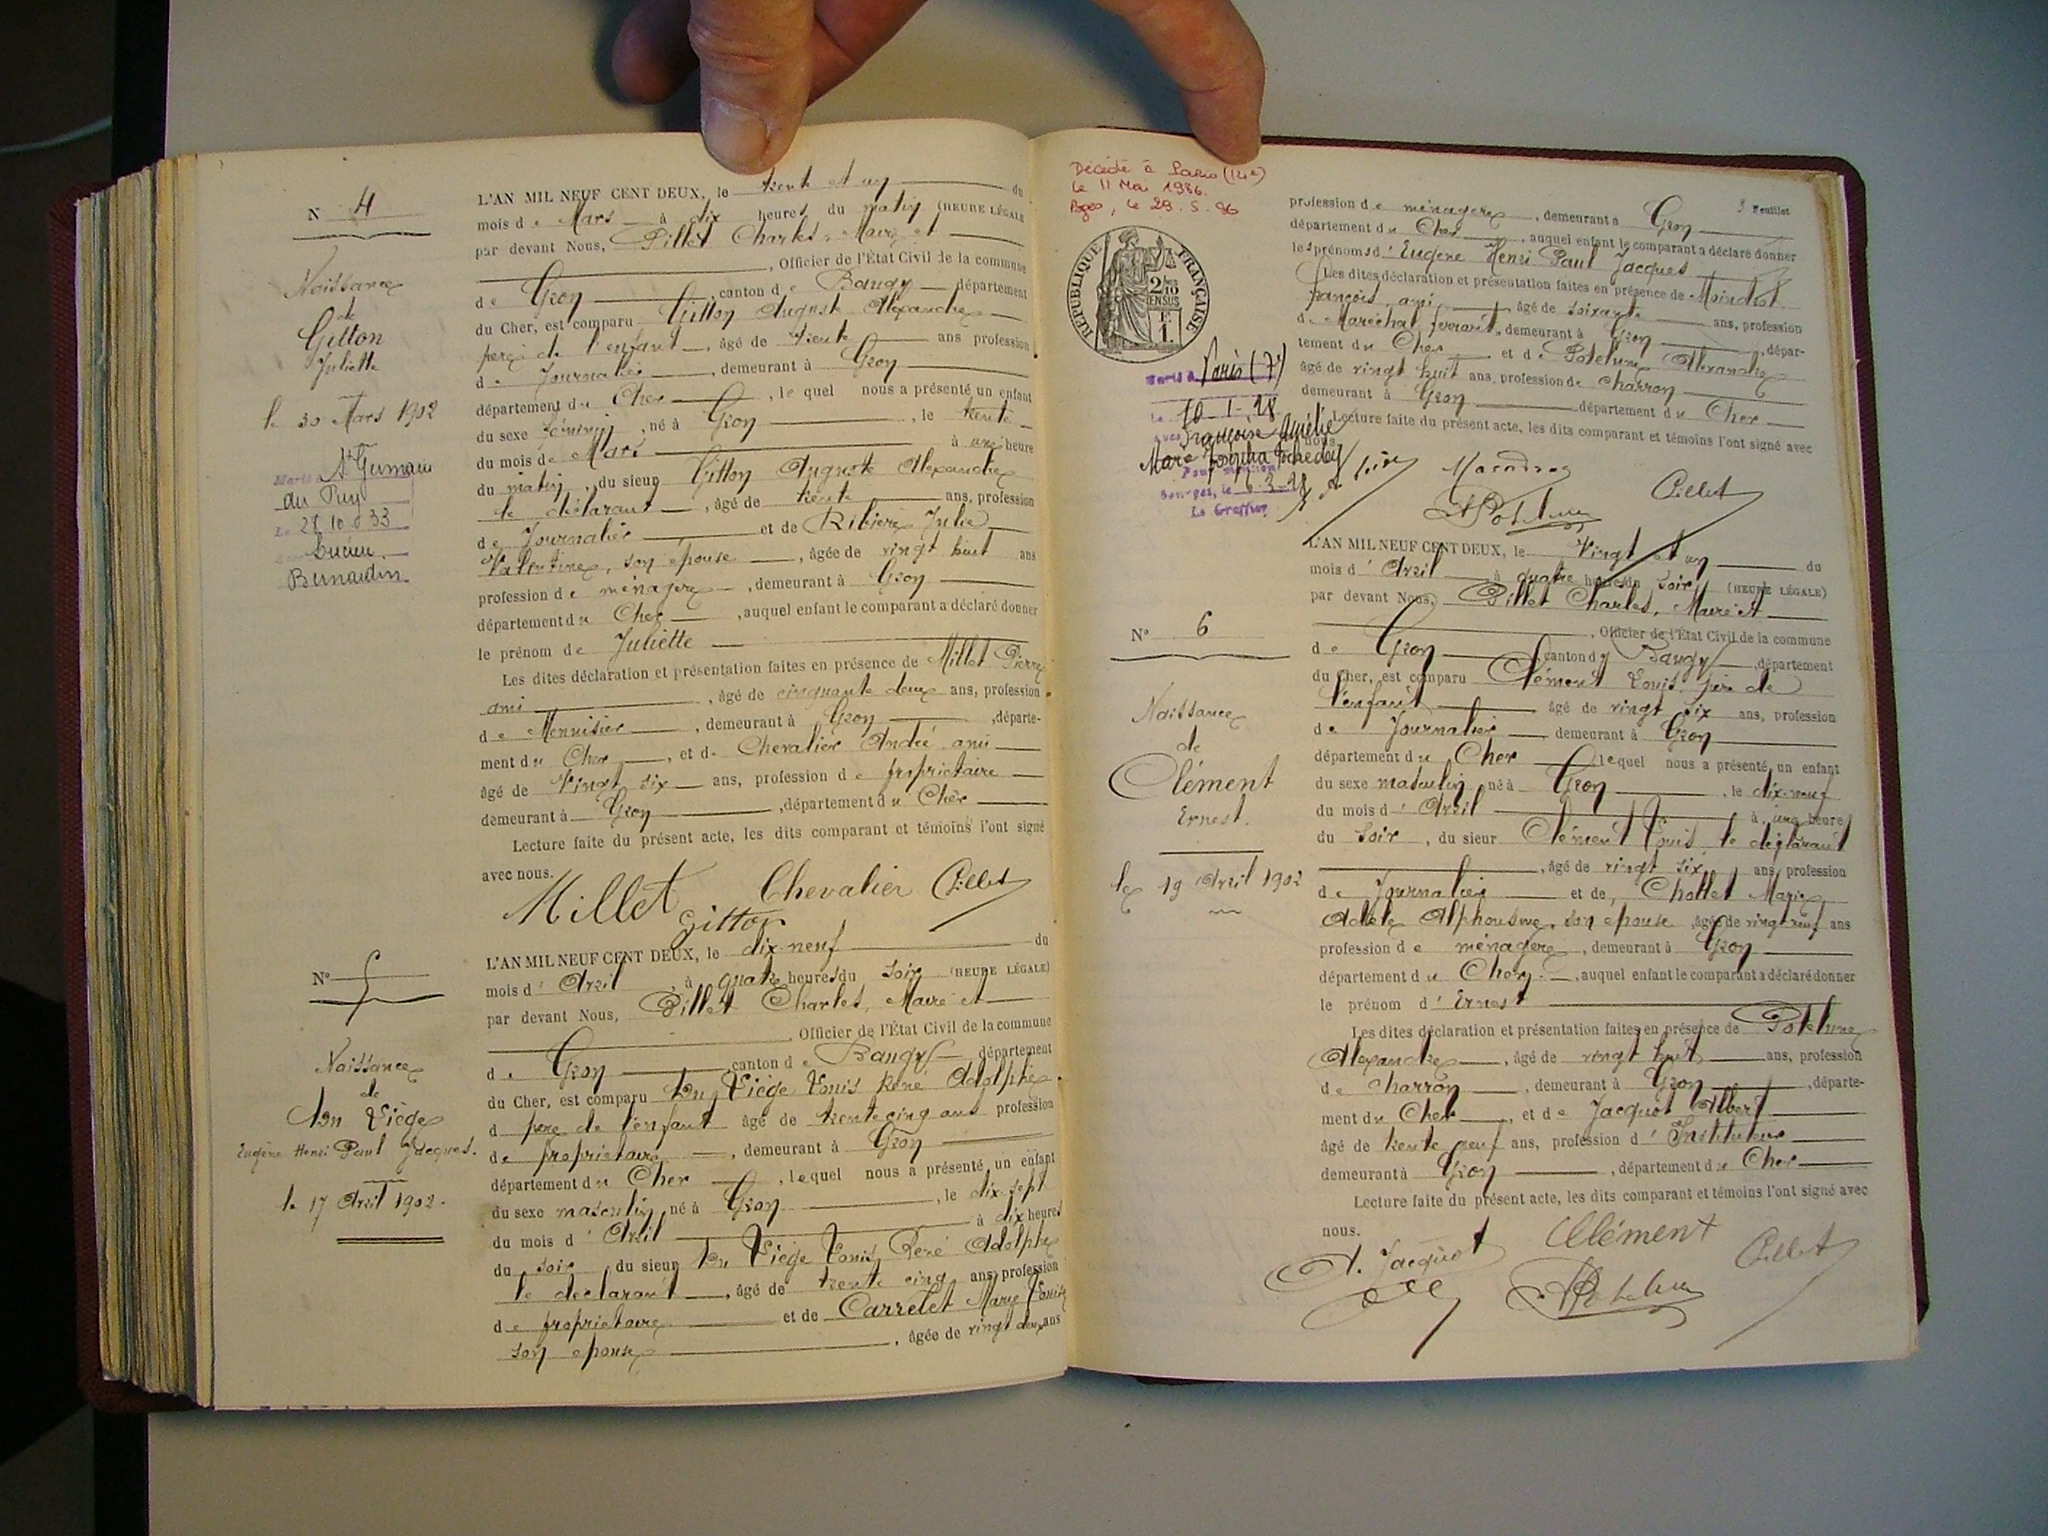 N 4
Naissance
de
Gitton
Juliette
le 30 Mars 1902
Marié à St Germain
du Puy
Le 28 10 1933
Lucien
Bernardin
L'AN MIL NEUF CENT DEUX, le trente et un du
mois de Mars à dix heures du matin (HEURE LÉGALE
par devant Nous, Pillet Charles, Maire et
, Officier de l'État Civil de la commune
de Gron , canton de Baugy département
du Cher, est comparu Gitton Auguste Alexandre
père de l'enfant , âgé de trente ans profession
de Journalier , demeurant à Gron
département du Cher , le quel nous a présenté un enfant
du sexe féminin , né à Gron , le trente
du mois de Mars à une heure
du matin , du sieur Gitton Auguste Alexandre
le déclarant , âgé de trente ans, profession
de Journalier et de Ribière Julie
Valentine, son épouse , âgée de vingt huit ans
profession de ménagère , demeurant à Gron
département du Cher , auquel enfant le comparant a déclaré donner
le prénom de Juliette
Les dites déclaration et présentation faites en présence de Millet Pierre
ami , âgé de cinquante deux ans, profession
de Menuisier , demeurant à Gron , départe-
ment du Cher , et de Chevalier André ami
âgé de vingt six ans, profession de propriétaire
demeurant à Gron , département du Cher
Lecture faite du présent acte, les dits comparant et témoins l'ont signé
avec nous.
Millet Chevalier Pillet
Gitton
N° 5
Naissance
de
Du Liège
Eugène Henri Paul Jacques.
le 17 Avril 1902.
L'AN MIL NEUF CENT DEUX, le dix-neuf du
mois d'Avril , à quatre heures du soir (HEURE LÉGALE)
par devant Nous, Pillet Charles, Maire et
, Officier de l'État Civil de la commune
de Gron , canton de Baugy , département
du Cher, est comparu Du Liège Louis René Adolphe
père de l'enfant âgé de trente cinq ans profession
de propriétaire , demeurant à Gron
département du Cher , lequel nous a présenté un enfant
du sexe masculin , né à Gron , le dix-sept
du mois d'Avril à dix heures
du soir , du sieur Du Liège Louis René Adolphe
le déclarant , âgé de trente cinq ans, profession
de propriétaire et de Carrelet Marie Louise
son épouse , âgée de vingt deux ans
Décédé à Paris (14e)
le 11 Mai 1986.
Bges, le 29.5.86
RÉPUBLIQUE FRANÇAISE
Marié à Paris (7e)
Le 10-1-28
avec Françoise Amélie
Marie Josepha
Pour mention
Bourges, le 6-3-28
Le Greffier
3 Feuillet
profession de ménagère , demeurant à Gron
département du Cher , auquel enfant le comparant a déclaré donner
les prénoms d'Eugène Henri Paul Jacques
Les dites déclaration et présentation faites en présence de Maindrot
françois, ami âgé de soixante ans, profession
de Maréchal ferrant, demeurant à Gron , dépar-
tement du Cher et de Potelune Alexandre
âgé de vingt huit ans, profession de charron
demeurant à Gron département du Cher
Lecture faite du présent acte, les dits comparant et témoins l'ont signé avec
nous
Maindrot
Potelune
Pillet
N° 6
Naissance
de
Clément
Ernest.
le 19 Avril 1902
L'AN MIL NEUF CENT DEUX, le vingt et un du
mois d'Avril à quatre heures du soir (HEURE LÉGALE)
par devant Nous, Pillet Charles, Maire et
, Officier de l'État Civil de la commune
de Gron , canton dy Baugy , département
du Cher, est comparu Clément Louis père de
l'enfant âgé de vingt six ans, profession
de Journalier , demeurant à Gron
département du Cher , lequel nous a présenté un enfant
du sexe masculin , né à Gron , le dix-neuf
du mois d'Avril à une heure
du soir , du sieur Clément Louis, le déclarant
, âgé de vingt six ans, profession
de Journalier et de, Chollet Marie
Adèle Alphonsine, son épouse , âgé de vingt neuf ans
profession de ménagère , demeurant à Gron
département du Cher , auquel enfant le comparant a déclaré donner
le prénom d'Ernest
Les dites déclaration et présentation faites en présence de Potelune
Alexandre , âgé de vingt huit ans, profession
de charron , demeurant à Gron , départe-
ment du Cher , et de Jacquot Albert
âgé de trente neuf ans, profession d'Instituteur
demeurant à Gron , département du Cher
Lecture faite du présent acte, les dits comparant et témoins l'ont signé avec
nous.
A. Jacquot Clément Pillet
Potelune